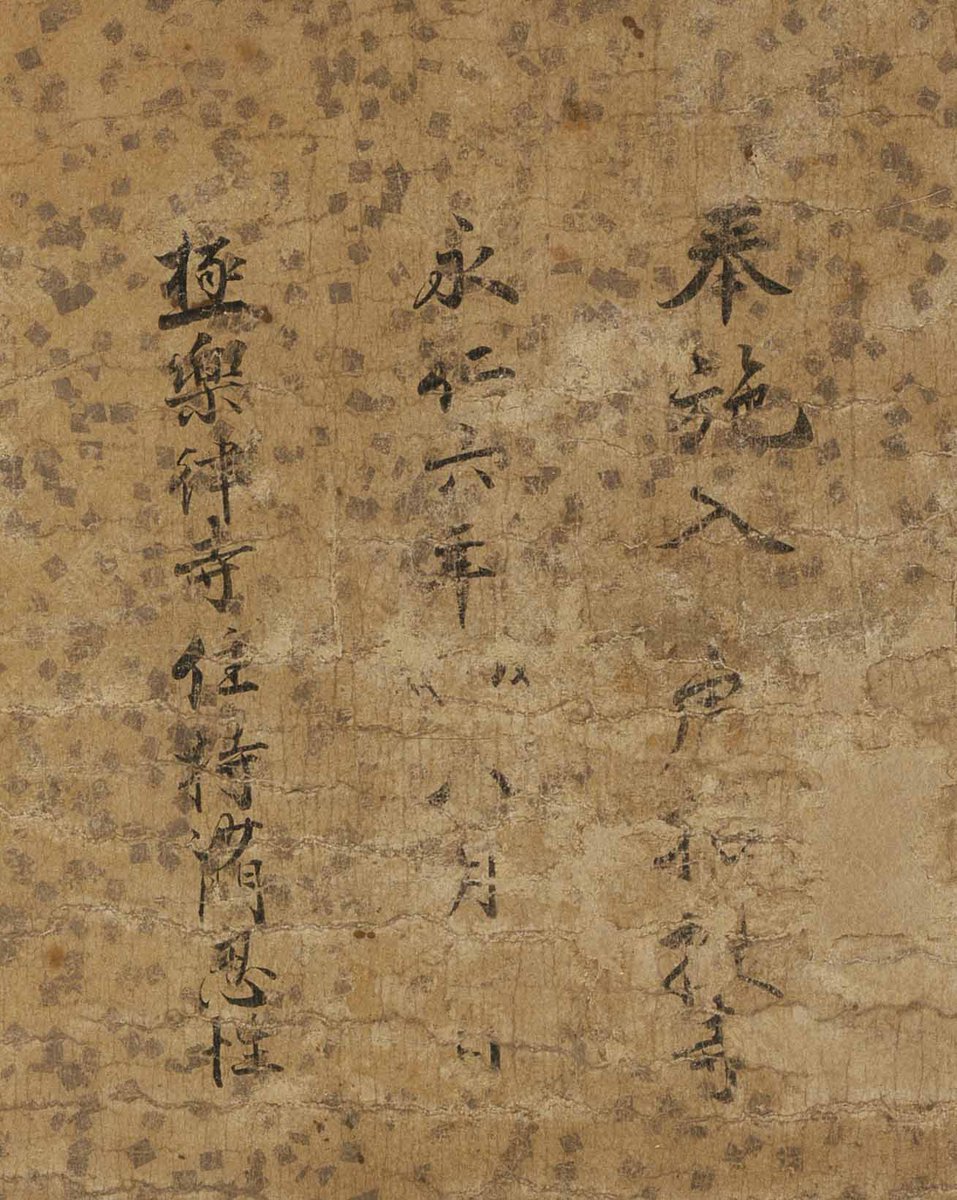 奉施入唐招提寺
永仁六年八月日
極樂律寺住持沙門忍性